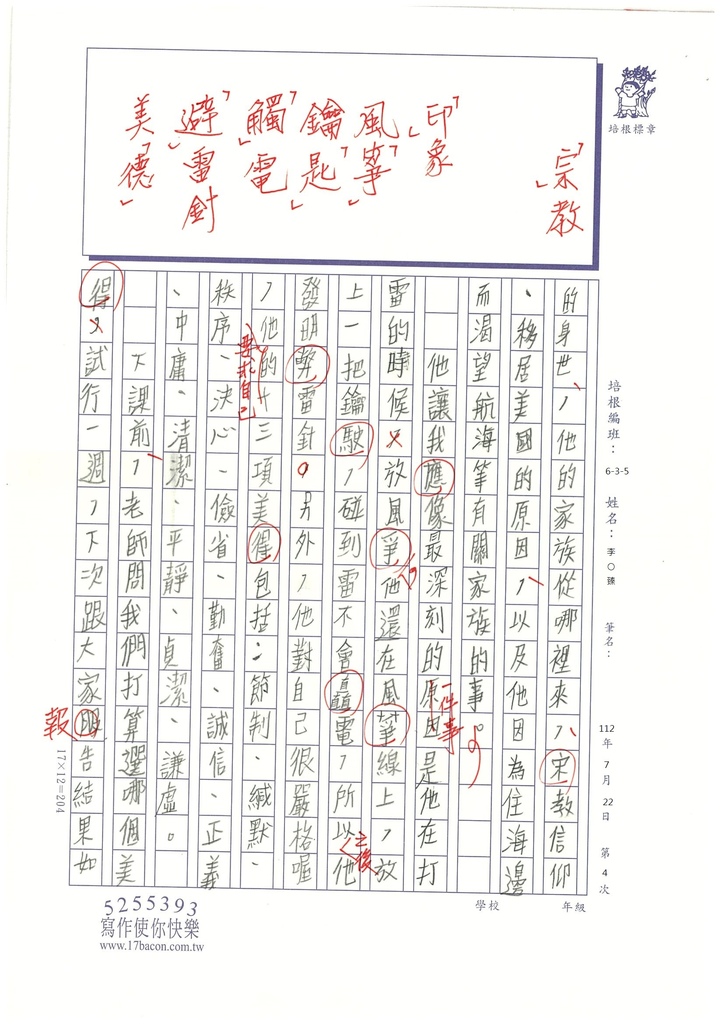 「宗」教
「印」象
風「箏」
鑰「匙」
「觸」電
「避」雷針
美「德」
培根標章
的身世、，他的家族從哪裡來，、宋教信仰
、移居美國的原因，、以及他因為住海邊
而渴望航海等有關家族的事。
他讓我應像最深刻的原因是他在打
一件事
雷的時候又放風爭他還在風箏線上，放
的
上一把鑰駛，碰到雷不會矗電，所以他
之後
發明弊雷針。另外，他對自己很嚴格喔
，他的十三項美得包括：節制、緘默、
要求自己
秩序、決心、儉省、勤奮、誠信、正義
、中庸、清潔、平靜、貞潔、謙虛。
下課前，、老師問我們打算選哪個美
得又試行一週，下次跟大家告結果如
報
培根編班：
6-3-5
姓名：
李○臻
筆名：
112年7月22日
第4次
學校
年級
17×12=204
5255393
寫作使你快樂
www.17bacon.com.tw